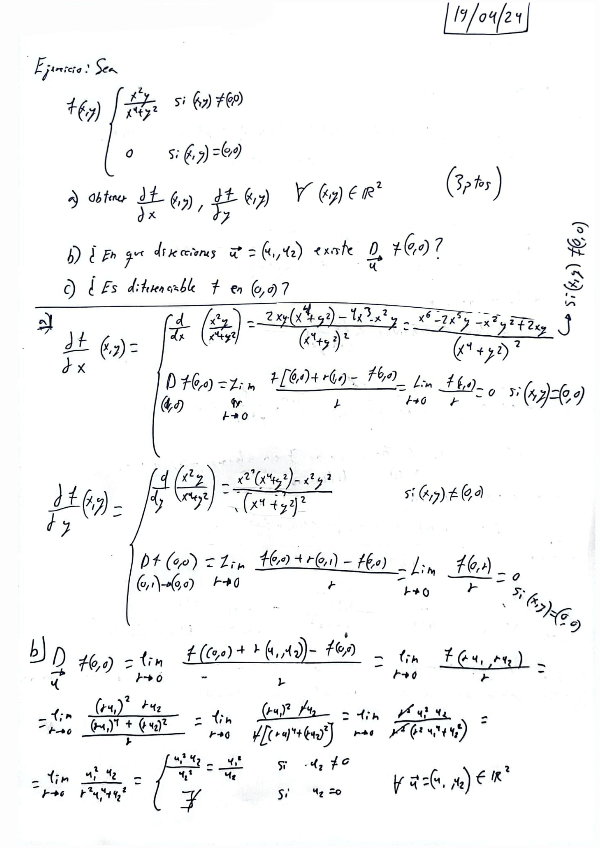 19/04/24
Ejercicio: Sea
f(x,y) { x²y/(x⁴+y²) si (x,y) ≠ (0,0)
0 si (x,y) = (0,0)
a) Obtener ∂f/∂x (x,y), ∂f/∂y (x,y) ∀ (x,y) ∈ ℝ² (3ptos)
b) ¿En que direcciones u⃗ = (u₁,u₂) existe D_u⃗ f(0,0)?
c) ¿Es diferenciable f en (0,0)?
a) ∂f/∂x (x,y) = { d/dx (x²y/(x⁴+y²)) = (2xy(x⁴+y²) - 4x³-x²y)/(x⁴+y²)² = (x⁶-2x⁵y-x²y²+2xy)/(x⁴+y²)² → si (x,y) ≠ (0,0)
D f(0,0) = Lim r→0 (f[(0,0)+r(1,0) - f(0,0))/r = Lim r→0 f(r,0)/r = 0 si (x,y)=(0,0)
∂f/∂y (x,y) = { d/dy (x²y/(x⁴+y²)) = (x²(x⁴+y²)-x²y²)/(x⁴+y²)² si (x,y) ≠ (0,0)
Df (0,0) = Lim r→0 (f(0,0)+r(0,1)-f(0,0))/r = Lim r→0 f(0,r)/r = 0 si (x,y)=(0,0)
(0,1)→(0,0)
b) D_u⃗ f(0,0) = lim r→0 (f((0,0)+r(u₁,u₂)) - f(0,0))/r = lim r→0 f(ru₁,ru₂)/r =
= lim r→0 (((ru₁)² ru₂)/((ru₁)⁴+(ru₂)²))/r = lim r→0 ((ru₁)² ru₂)/(r[(ru)⁴+(ru₂)²]) = lim r→0 (r² u₁² u₂)/(r²(r²u₁⁴+u₂²)) =
= lim r→0 (u₁² u₂)/(r²u₁⁴+u₂²) = { (u₁² u₂)/u₂² = u₁²/u₂ si u₂ ≠ 0
∄ si u₂ = 0 ∀ u⃗ = (u₁,u₂) ∈ ℝ²